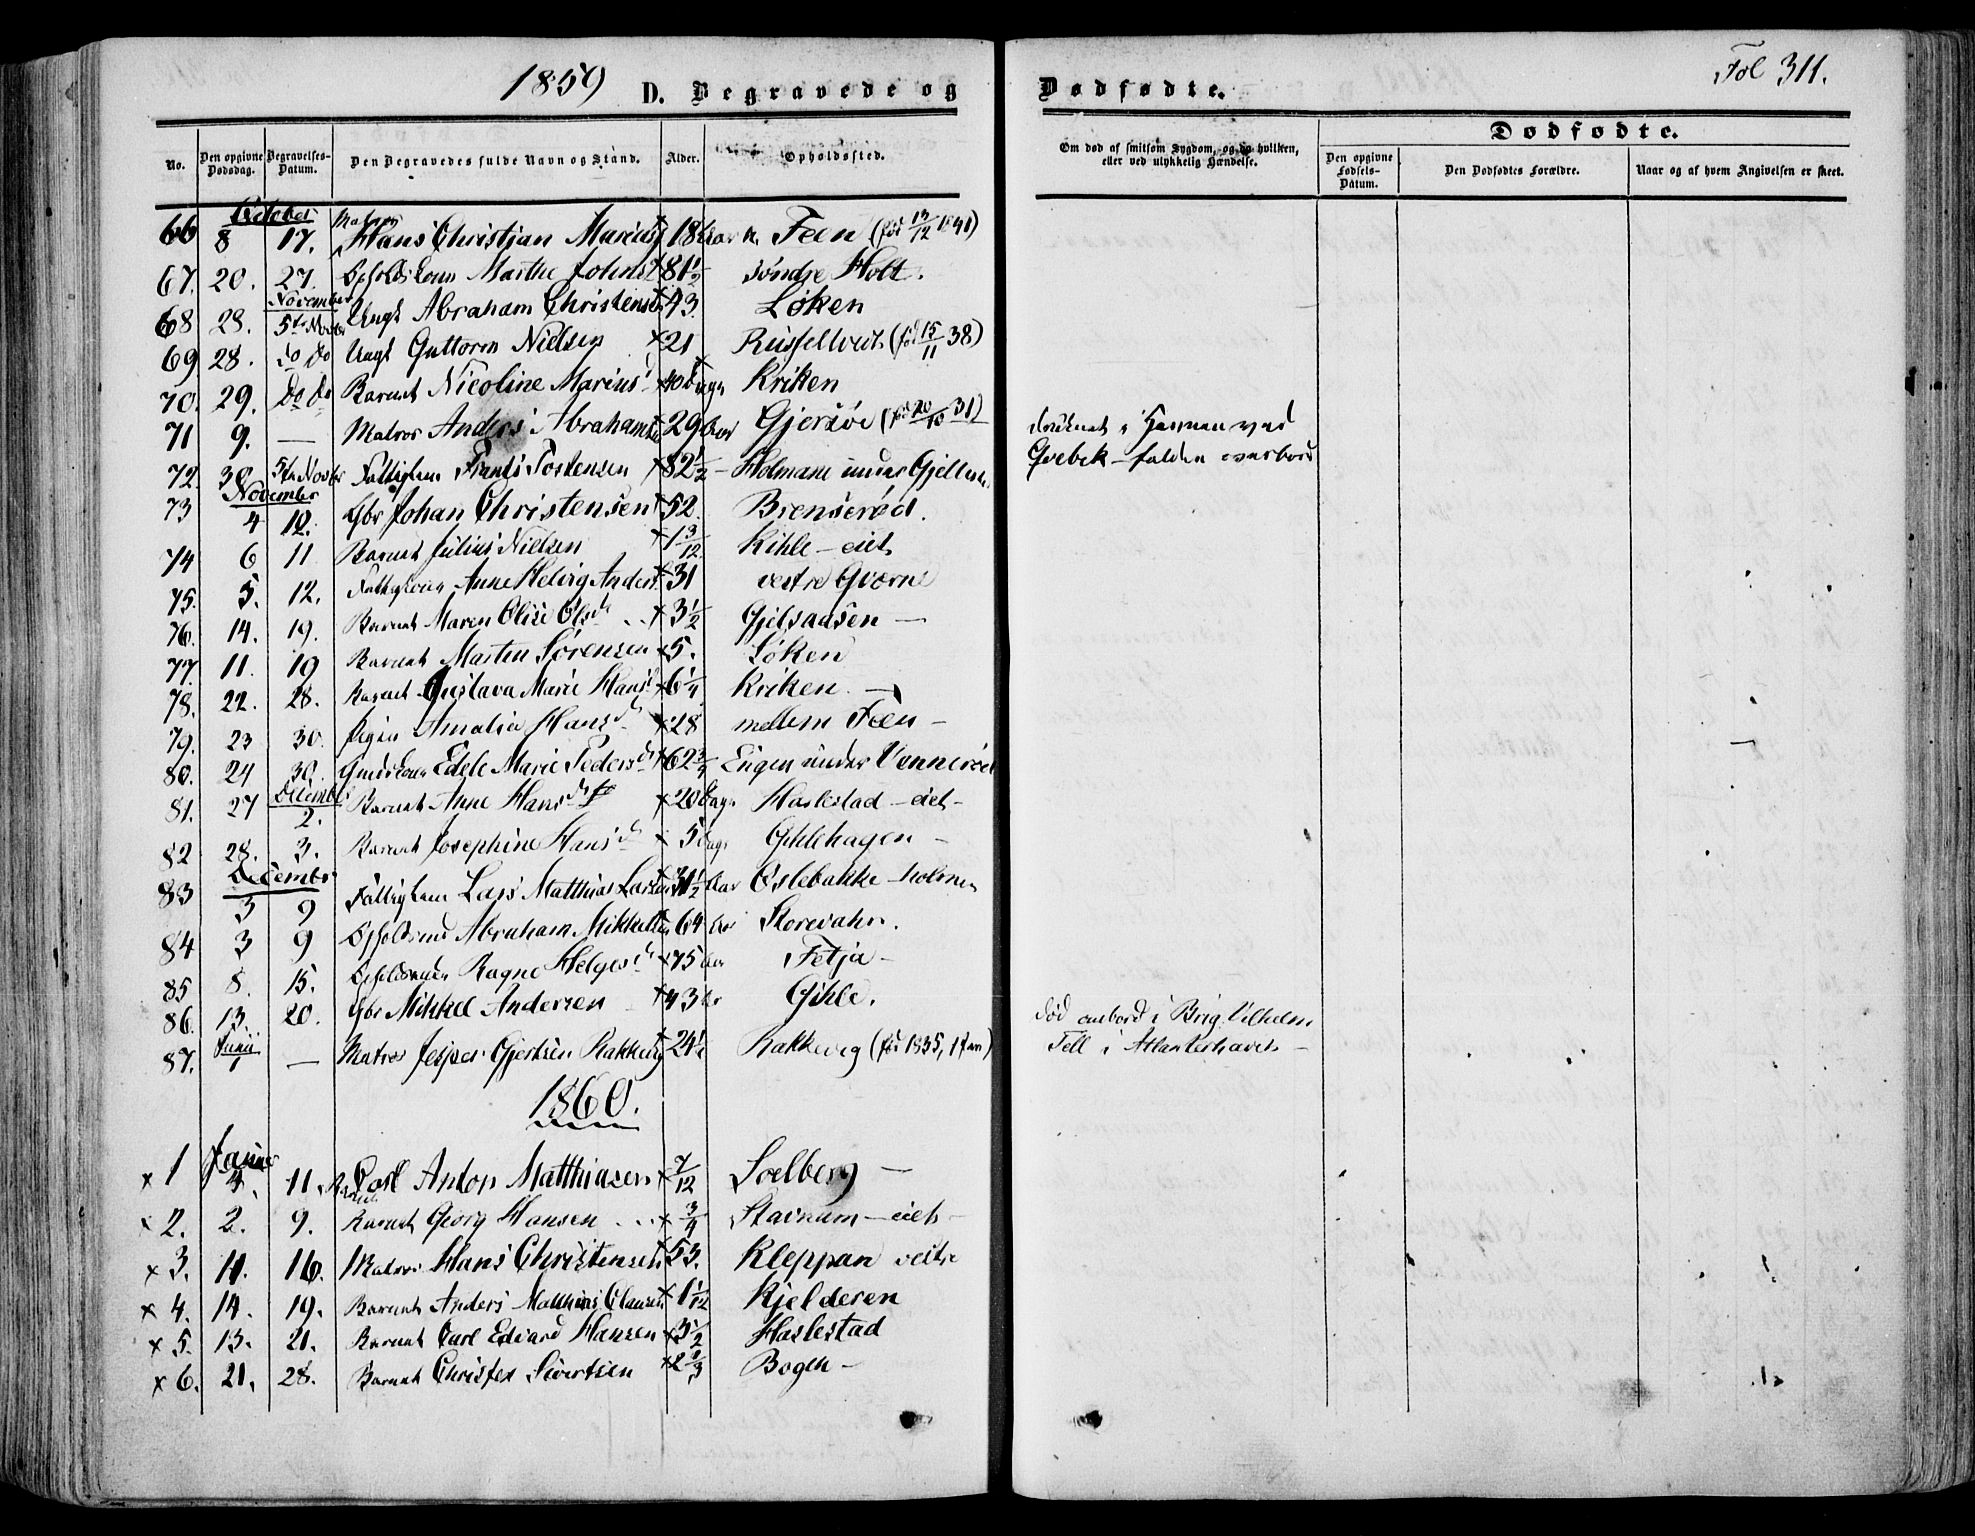 1859 D. Begravede og
Dødfødte.
Fol 311.
No. Den opgivne Dødsdag. Begravelses-Datum. Den Begravedes fulde Navn og Stand. Alder. Opholdssted.
Om død af smitsom Sygdom, og da hvilken, eller ved ulykkelig Hændelse.
Dødfødte.
Den opgivne Fødsels-Datum. Den Dødfødtes Forældre. Naar og af hvem Angivelsen er skeet.
October
66 8 17. Matros Hans Christian Marius 18 Aar n. Feen (fød 13/12 1841)
67. 20. 27. Marthe Johns 81 1/2 søndre Holt.
November
68 28. 5te Novbr Ungk Abraham Christensen 43. Løken
69 28. do do Ungk Guttorm Nielsen 21 Russeltvedt (fød 15/11 38)
70. 29. Do do Barnet Nicoline Mariusd 10 Dage Kriken
71 9. — Matros Anders Abrahamsen 29 Aar Gjersøe (fød 20/10 31) druknet i Havnen ved
72. 30 5te Novbr Fattiglem Frants Tostensen 82 1/2 Holmane under Gjellestad Qvebek – falden overbord
November
73 4 12. Gbr Johan Christensen 52. Brenserød.
74 6 11 Barnet Julius Nielsen 1 3/12 Kihle – eiet
75. 5. 12. Anne Helvig Anders 31 vestre Qvorne
76. 14. 19. Barnet Maren Olise Olsd 3 1/2 Gjelsaasen —
77. 11. 19 Barnet Martin Sørensen 5. Løken
78. 22. 28. Barnet Gustava Marie Hansd 6 1/4 Kriken. —
79. 23 30. Pigen Amalia Hansd 28 mellem Feen –
80. 24 30. Edele Marie Pedersd 62 3/4 Engen under Vennerød
December
81. 27 2. Barnet Anne Hansd 20 Dage Haslestad – eiet –
82 28. 3. Barnet Josephine Hansd 5 Dage Gihlehagen –
December
83 3 9 Fattiglem Lars Matthias Larsen 31 1/2 Aar Østebakke – holmen
84 3 9 Abraham Mikkelsen 64 Aar Storevahr.
85 8. 15. Ragne Helgesd 75 Aar Fetja –
86. 13. 20. Gbr Mikkel Andersen 43 Aar Gihle. død ombord i Brig Vilhelm
Junii
87. 1 — Matros Jesper Gjertsen Rakkevig 24 1/2 Rakkevig (fød 1835, 1 Jan) Tell i Atlanterhavet –
1860.
Januar
x 1 4. 11. Barnet Carl Anton Matthiasen 7/12 Soelberg —
x 2. 2. 9. Barnet Georg Hansen 3/4 Stavnum – eiet –
x 3. 11. 16. Matros Hans Christensen 53. Kleppan vestre
x 4. 14. 19. Barnet Anders Matthias Clausen 1 1/12 Kjelderen
x 5. 13. 21. Barnet Carl Edvard Hansen 3 1/2 Haslestad
x 6. 21. 28. Barnet Christen Sivertsen 2 2/3 Bogen –